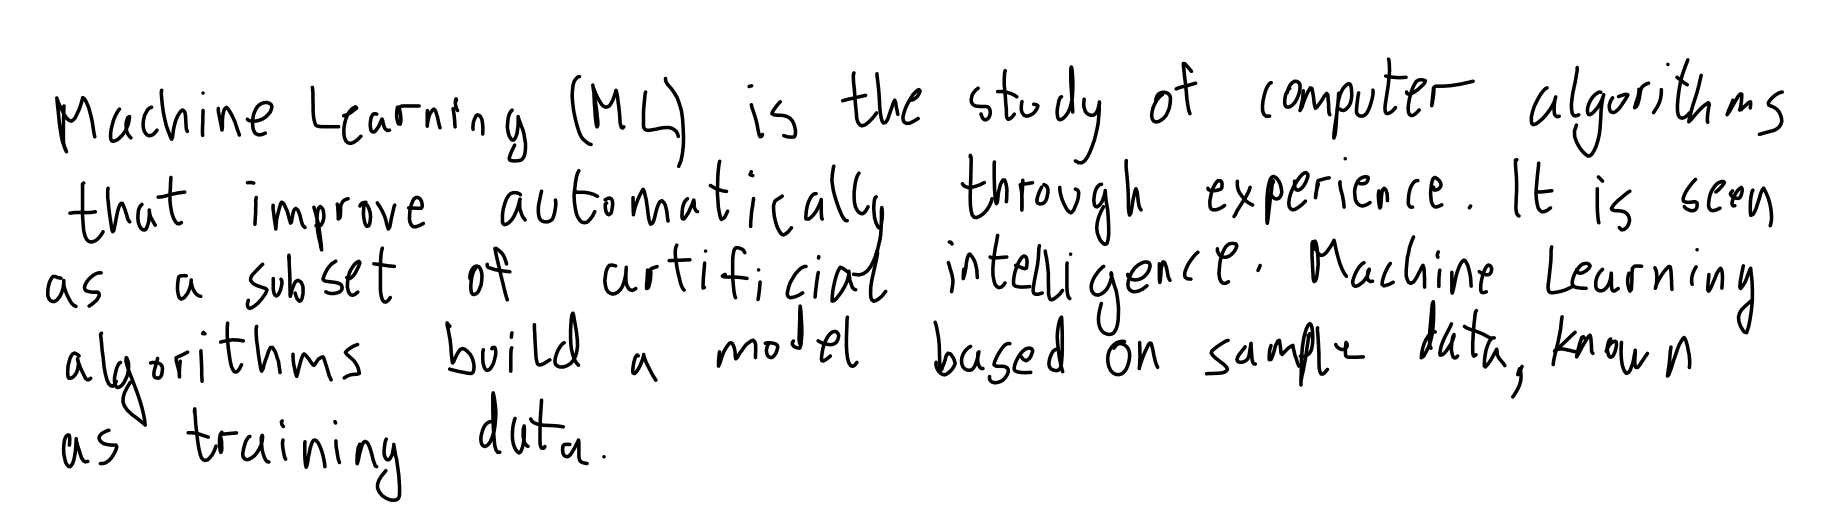 Machine Learning (ML) is the study of computer algorithms
that improve automatically through experience. It is seen
as a subset of artificial intelligence. Machine Learning
algorithms build a model based on sample data, known
as training data.